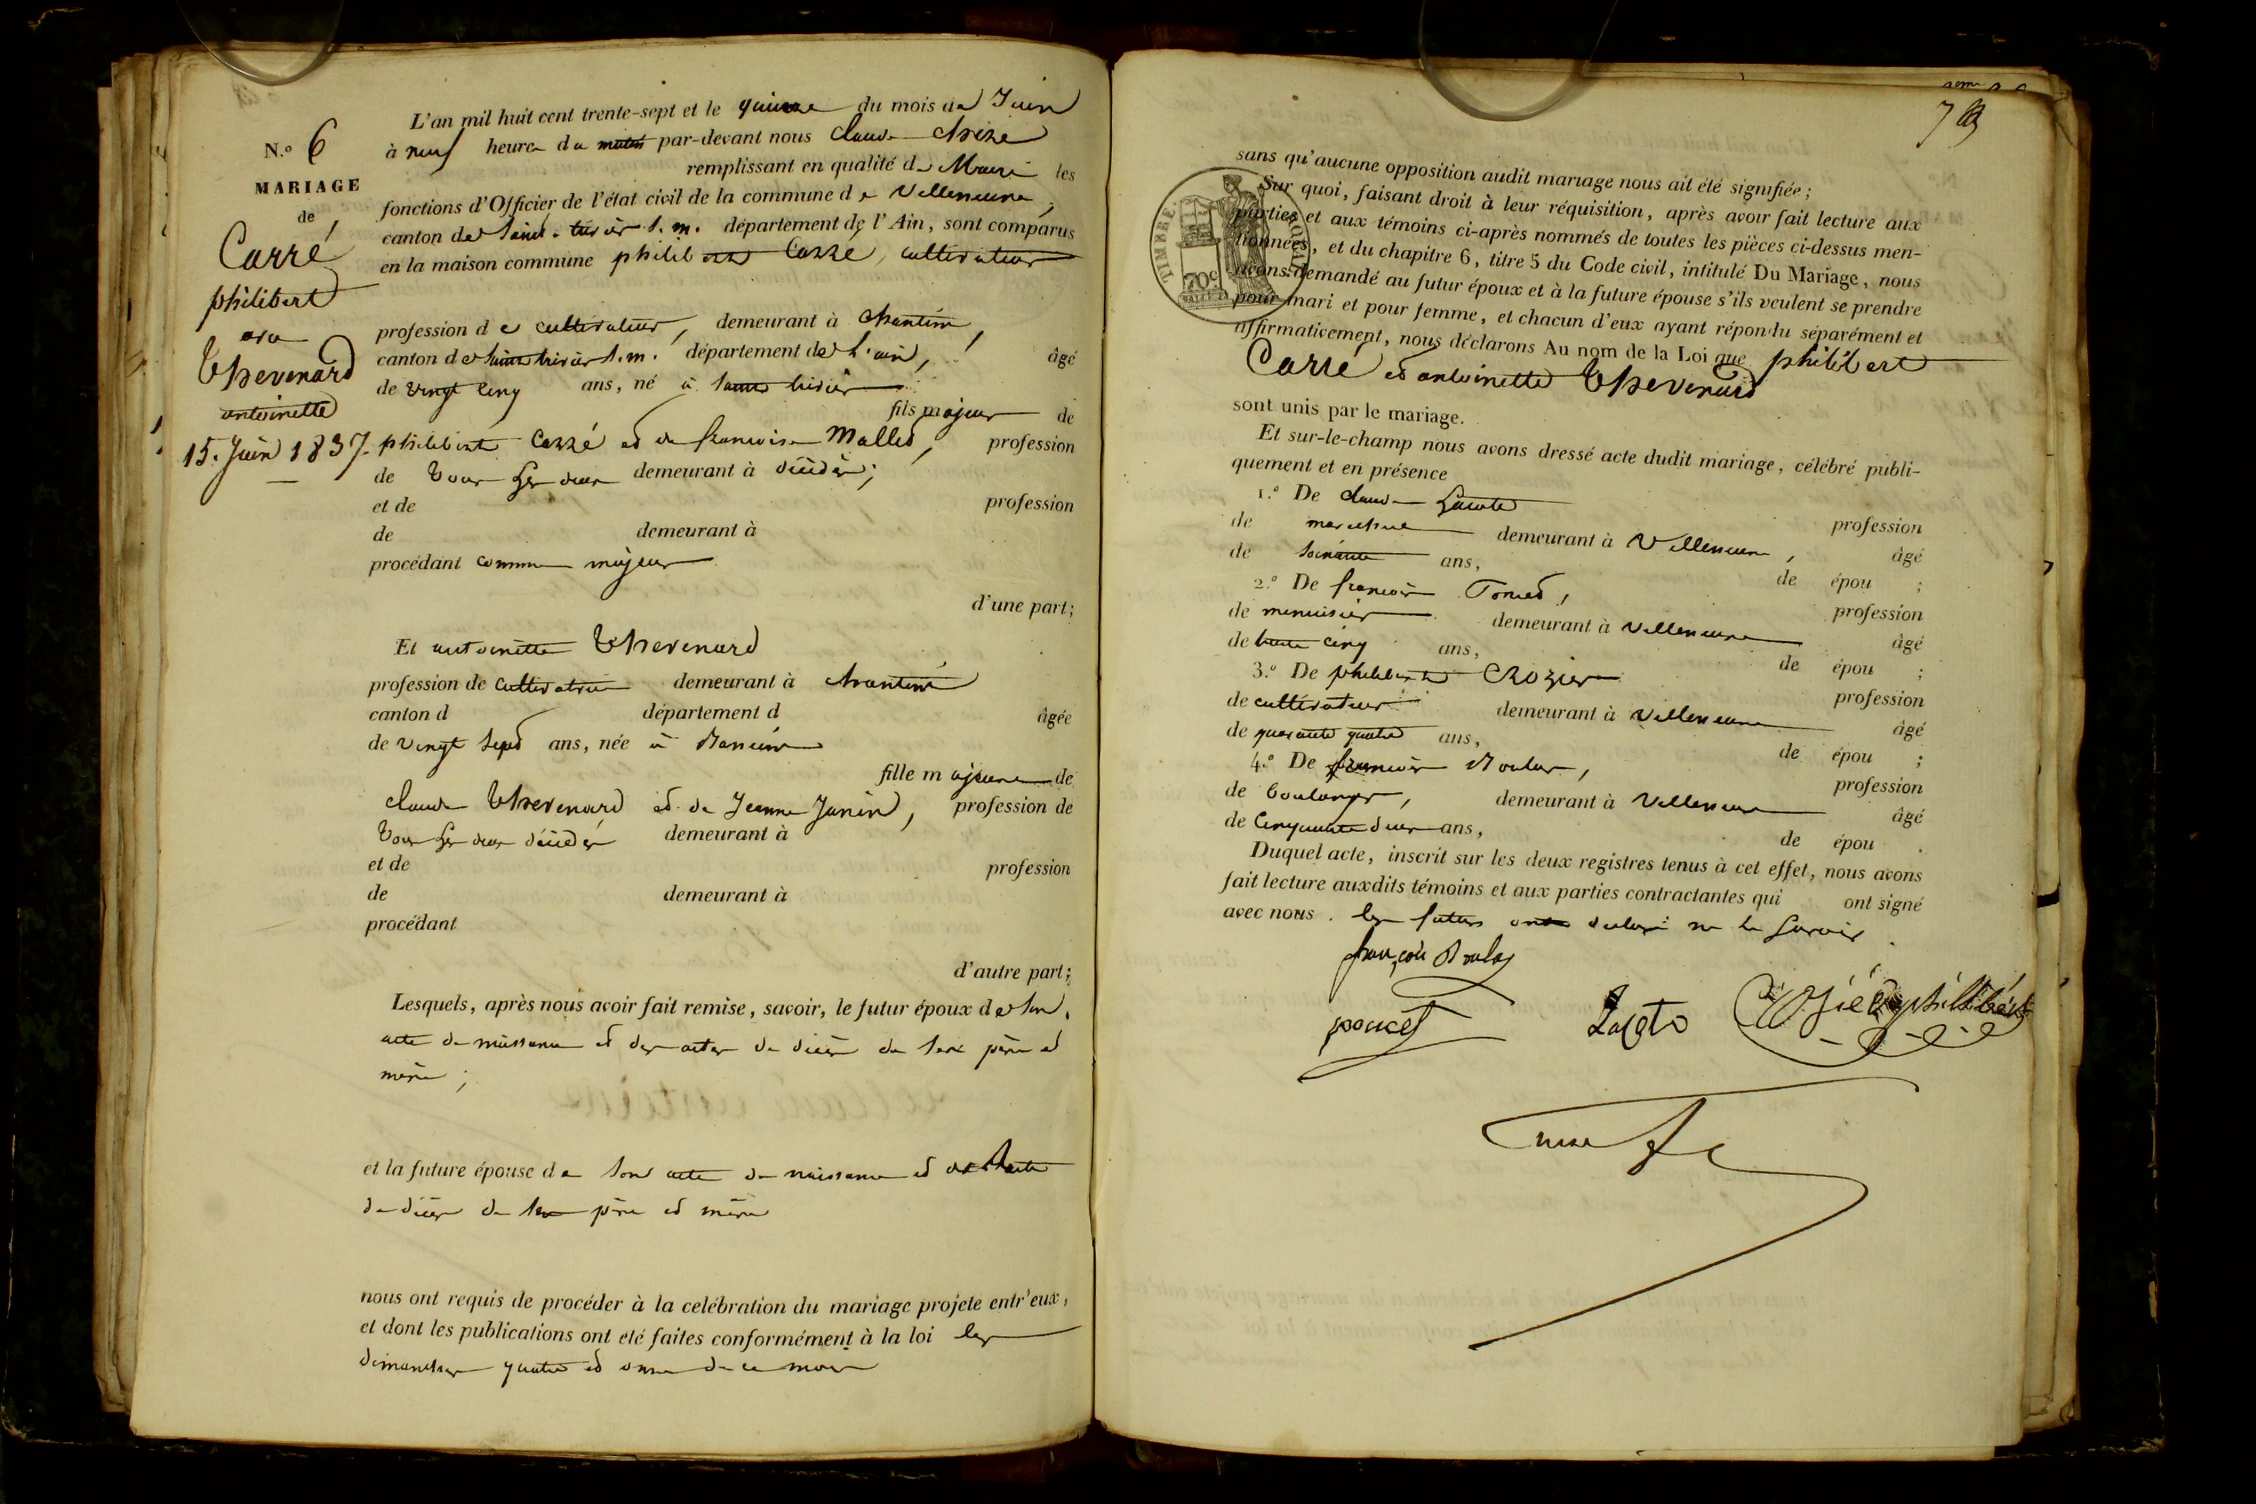 N.º 6
MARIAGE
de
Carré
philibert
avec
Thevenard
antoinette
15. Juin 1837.
L'an mil huit cent trente-sept et le quinze du mois de Juin
à neuf heure du matin par-devant nous claude
remplissant en qualité de Maire les
fonctions d'Officier de l'état civil de la commune de Villeneuve,
canton de Saint-trivier s. m. département de l'Ain, sont comparus
en la maison commune philibert Carré, cultivateur
profession de cultivateur, demeurant à chanteins,
canton de saint trivier s. m. département de l'ain, âgé
de vingt cinq ans, né à saint trivier
fils majeur de
philibert Carré et de francoise Mallet, profession
de tous les deux demeurant à décédés;
et de profession
de demeurant à
procédant comme majeur
d'une part;
Et antoinette Thevenard
profession de cultivatrice demeurant à chanteins
canton d département d âgée
de vingt sept ans, née à
fille majeure de
claude Thevenard et de Jeanne Janin, profession de
tous les deux décédés demeurant à
et de profession
de demeurant à
procédant
d'autre part;
Lesquels, après nous avoir fait remise, savoir, le futur époux de son
acte de naissance et des actes de décès de ses père et
mère;
et la future épouse de son acte de naissance et de
de décès de ses père et mère
nous ont requis de procéder à la celébration du mariage projeté entr'eux,
et dont les publications ont été faites conformément à la loi les
dimanches quatre et onze de ce mois
sans qu'aucune opposition audit mariage nous ait été signifiée;
Sur quoi, faisant droit à leur réquisition, après avoir fait lecture aux
parties et aux témoins ci-après nommés de toutes les pièces ci-dessus men-
tionnées, et du chapitre 6, titre 5 du Code civil, intitulé Du Mariage, nous
avons demandé au futur époux et à la future épouse s'ils veulent se prendre
pour mari et pour femme, et chacun d'eux ayant répondu séparément et
affirmativement, nous déclarons Au nom de la Loi que philibert
Carré et antoinette Thevenard
sont unis par le mariage.
Et sur-le-champ nous avons dressé acte dudit mariage, célébré publi-
quement et en présence
1.º De claude Lacote profession
de marechal demeurant à Villeneuve, âgé
de soixante ans, de épou ;
2.º De francois Poncet, profession
de menuisier demeurant à Villeneuve âgé
de trente cinq ans, de épou ;
3.º De philibert Crozier profession
de cultivateur demeurant à Villeneuve âgé
de quarante quatre ans, de épou ;
4.º De francois Boulas, profession
de boulanger, demeurant à Villeneuve âgé
de cinquante deux ans, de épou .
Duquel acte, inscrit sur les deux registres tenus à cet effet, nous avons
fait lecture auxdits témoins et aux parties contractantes qui ont signé
avec nous. les futurs ont déclaré ne le savoir.
françois Boulas
poncet
TIMBRE ROYAL
70c